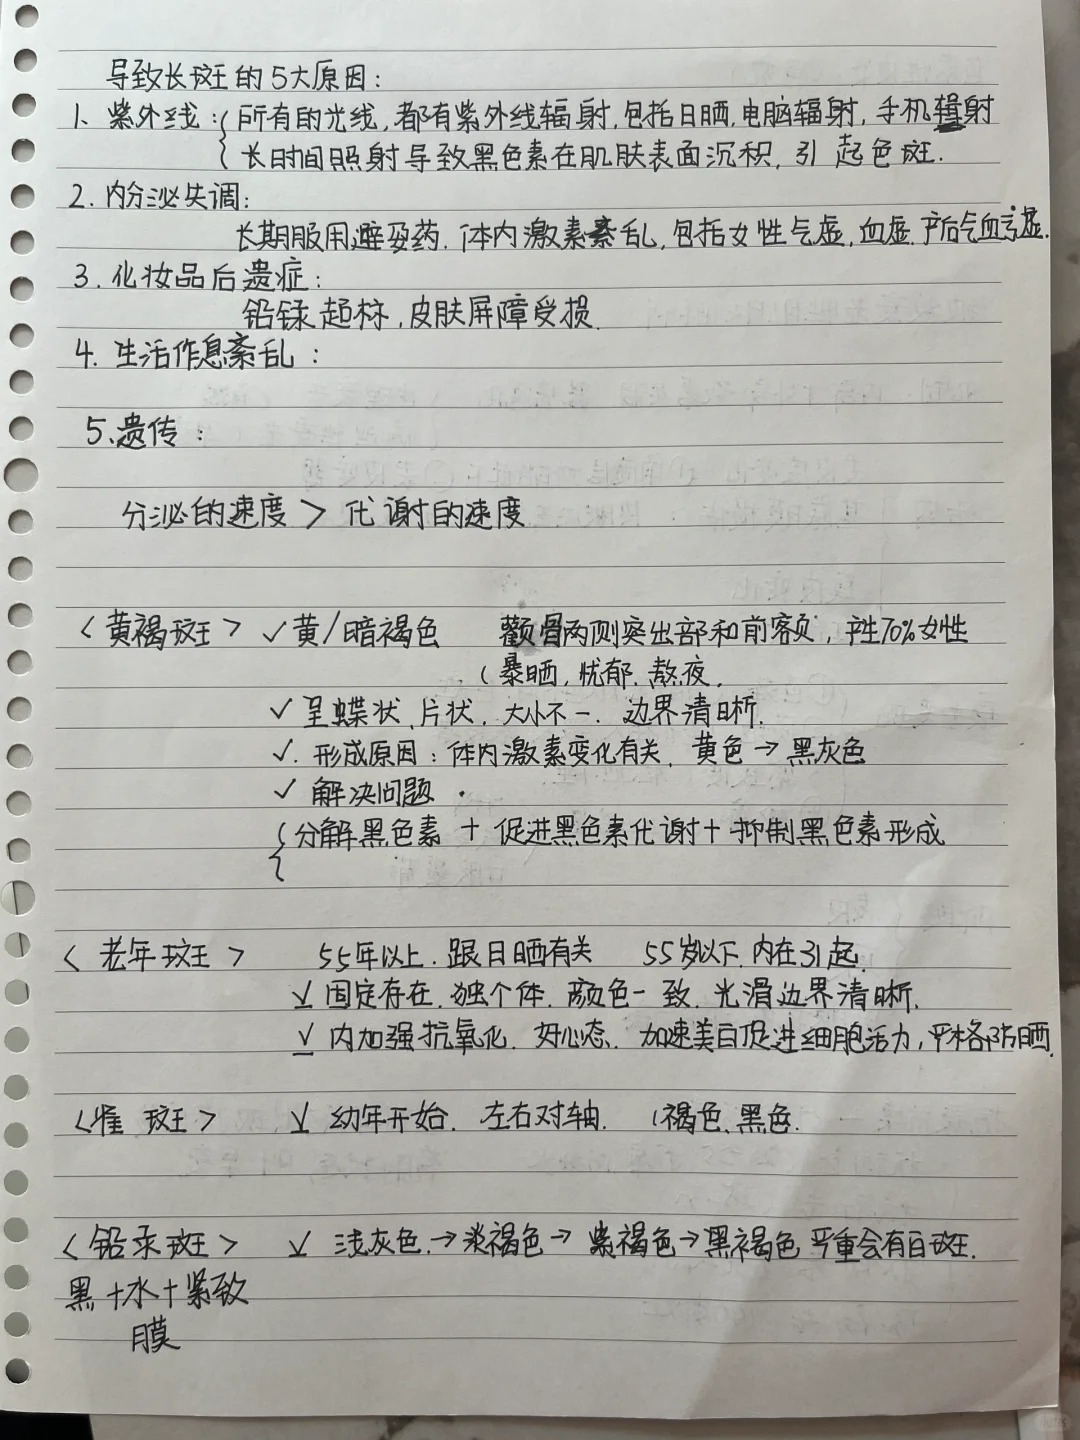 导致长斑的5大原因:
1、紫外线:{所有的光线,都有紫外线辐射,包括日晒,电脑辐射,手机辐射
{长时间照射导致黑色素在肌肤表面沉积,引起色斑.
2.内分泌失调:
长期服用避孕药.体内激素紊乱,包括女性气虚,血虚.产后气血亏虚.
3.化妆品后遗症:
铅录超标,皮肤屏障受损.
4.生活作息紊乱:
5.遗传:
分泌的速度>代谢的速度
<黄褐斑> ✓黄/暗褐色 颧骨两侧突出部和前额,产生70%女性
(暴晒,忧郁.熬夜.
✓呈蝶状.片状.大小不一.边界清晰.
✓.形成原因:体内激素变化有关.黄色→黑灰色
✓解决问题.
{分解黑色素+促进黑色素代谢+抑制黑色素形成
<老年斑> 55年以上.跟日晒有关 55岁以下.内在引起.
✓固定存在.独个体.颜色一致.光滑边界清晰.
✓内加强抗氧化.好心态.加速美白促进细胞活力,严格防晒.
<雀斑> ✓幼年开始.左右对轴.(褐色、黑色.
<铅汞斑> ✓浅灰色.→淡褐色→紫褐色→黑褐色 严重会有白斑.
黑+水+紧致
膜